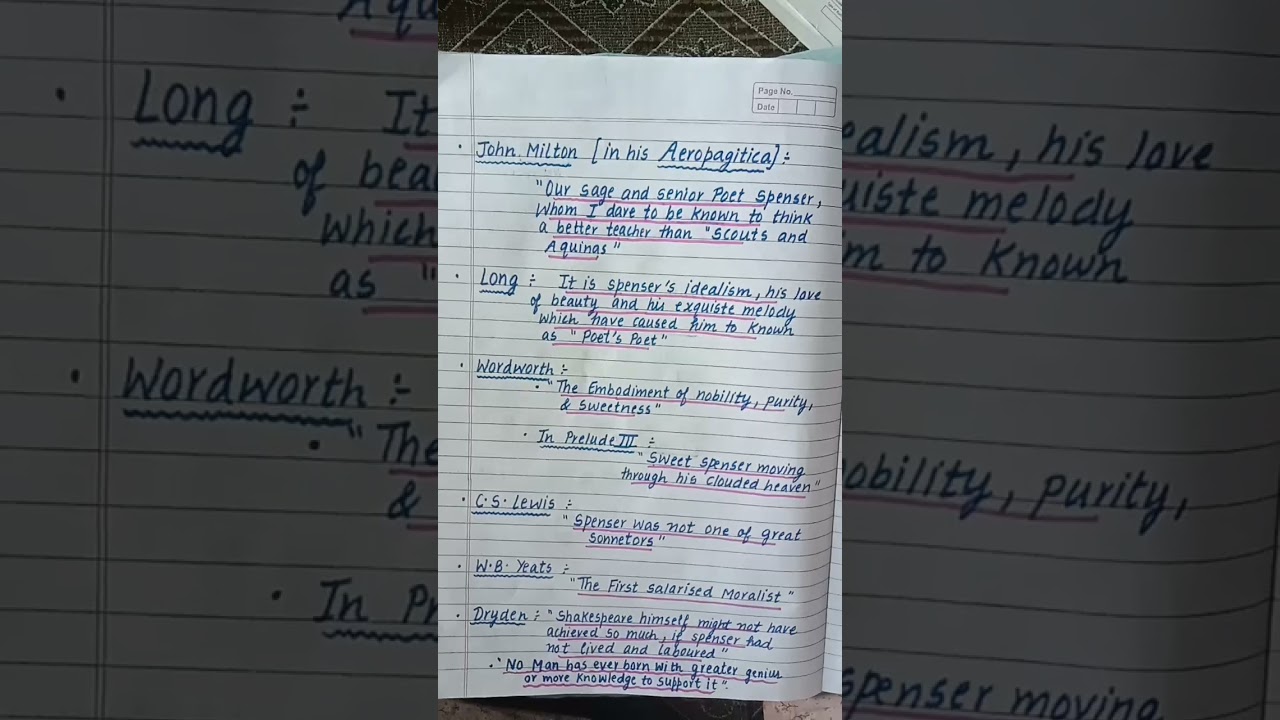 Page No.
Date
• John Milton [in his Aeropagitica] :-
"Our sage and senior Poet Spenser,
Whom I dare to be known to think
a better teacher than "Scouts and
Aquinas"
• Long :- It is spenser's idealism, his love
of beauty and his exquiste melody
which have caused him to known
as "Poet's Poet"
• Wordworth :-
• "The Embodiment of nobility, purity,
& sweetness"
• In Prelude III :-
"Sweet spenser moving
through his clouded heaven"
• C.S. Lewis :-
"Spenser was not one of great
sonnetors"
• W.B. Yeats :-
"The First salarised Moralist"
• Dryden :- "Shakespeare himself might not have
achieved so much, if spenser had
not lived and laboured"
• 'No Man has ever born with greater genius
or more knowledge to support it".
Aqu
• Long :- It
of bea
which
as "
• Wordworth :-
• "The
&
• In Pr
ealism, his love
uiste melody
m to known
obility, purity,
spenser moving